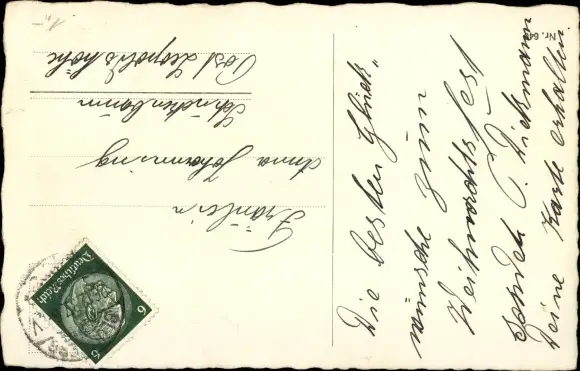 Fräulein
Anna Johanning
Schuckenbaum
Post Leopoldshöhe
Die besten Glück-
wünsche zum
Weihnachtsfest
sendet C. Diekmann
Deine Karte erhalten
Nr. 60
Deutsches Reich
6
6